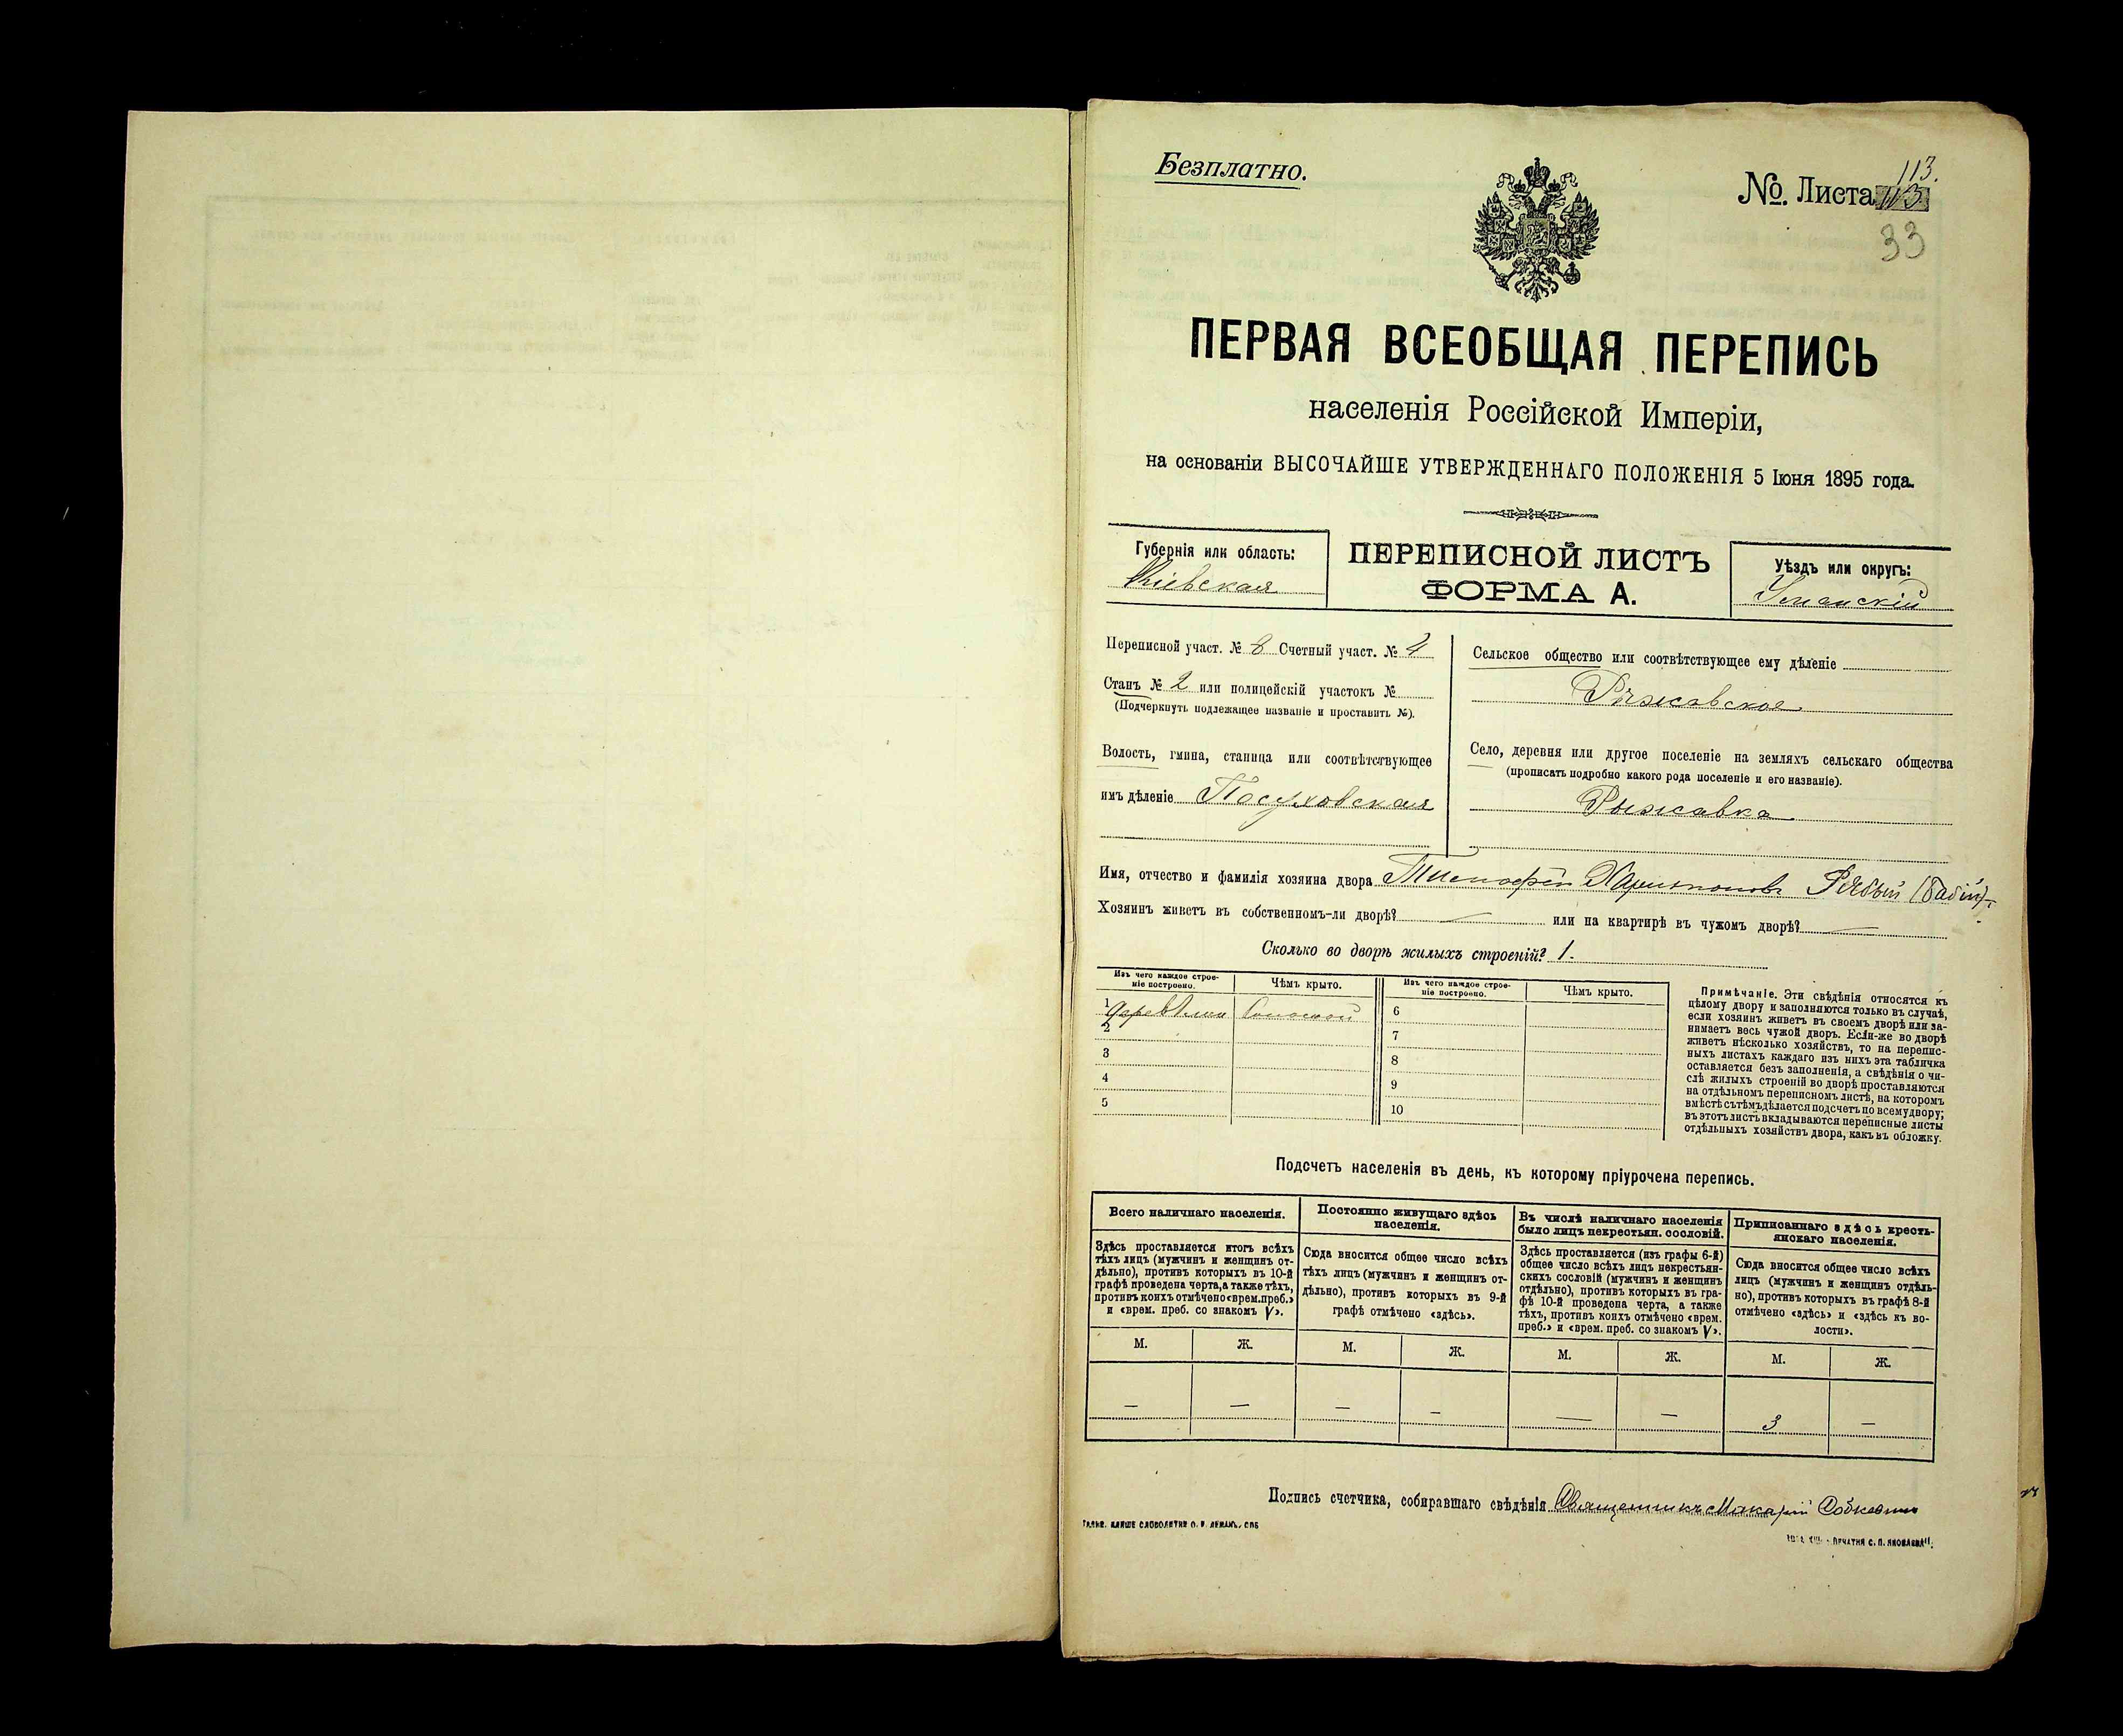 Безплатно.
№. Листа 113.
113
33
ПЕРВАЯ ВСЕОБЩАЯ ПЕРЕПИСЬ
населенія Россійской Имперіи,
на основаніи ВЫСОЧАЙШЕ УТВЕРЖДЕННАГО ПОЛОЖЕНІЯ 5 Іюня 1895 года.
Губернія или область:
Кіевская
ПЕРЕПИСНОЙ ЛИСТЪ
ФОРМА А.
Уѣздъ или округъ:
Уманскій
Переписной участ. № 8 Счетный участ. № 4
Станъ № 2 или полицейскій участокъ №
(Подчеркнуть подлежащее названіе и проставить №).
Волость, гмина, станица или соотвѣтствующее
имъ дѣленіе Посуховская
Сельское общество или соотвѣтствующее ему дѣленіе
Рыжавское
Село, деревня или другое поселеніе на земляхъ сельскаго общества
(прописать подробно какого рода поселеніе и его названіе).
Рыжавка
Имя, отчество и фамилія хозяина двора Тимофей Харитоновъ Рябый (Бабій)
Хозяинъ живетъ въ собственномъ-ли дворѣ? — или на квартирѣ въ чужомъ дворѣ? —
Сколько во дворѣ жилыхъ строеній? 1.
Изъ чего каждое строе-
ніе построено.
Чѣмъ крыто.
Изъ чего каждое строе-
ніе построено.
Чѣмъ крыто.
1 Соломой 6
2 7
3 8
4 9
5 10
Примѣчаніе. Эти свѣдѣнія относятся къ
цѣлому двору и заполняются только въ случаѣ,
если хозяинъ живетъ въ своемъ дворѣ или за-
нимаетъ весь чужой дворъ. Если-же во дворѣ
живетъ нѣсколько хозяйствъ, то на перепис-
ныхъ листахъ каждаго изъ нихъ эта табличка
оставляется безъ заполненія, а свѣдѣнія о чи-
слѣ жилыхъ строеній во дворѣ проставляются
на отдѣльномъ переписномъ листѣ, на которомъ
вмѣстѣ съ тѣмъ дѣлается подсчетъ по всему двору;
въ этотъ листъ вкладываются переписные листы
отдѣльныхъ хозяйствъ двора, какъ въ обложку.
Подсчетъ населенія въ день, къ которому пріурочена перепись.
Всего наличнаго населенія.
Здѣсь проставляется итогъ всѣхъ
тѣхъ лицъ (мужчинъ и женщинъ от-
дѣльно), противъ которыхъ въ 10-й
графѣ проведена черта, а также тѣхъ,
противъ коихъ отмѣчено «врем. преб.»
и «врем. преб. со знакомъ V».
Постоянно живущаго здѣсь
населенія.
Сюда вносится общее число всѣхъ
тѣхъ лицъ (мужчинъ и женщинъ от-
дѣльно), противъ которыхъ въ 9-й
графѣ отмѣчено «здѣсь».
Въ числѣ наличнаго населенія
было лицъ некрестьян. сословій.
Здѣсь проставляется (изъ графы 6-й)
общее число всѣхъ лицъ некрестьян-
скихъ сословій (мужчинъ и женщинъ
отдѣльно), противъ которыхъ въ гра-
фѣ 10-й проведена черта, а также
тѣхъ, противъ коихъ отмѣчено «врем.
преб.» и «врем. преб. со знакомъ V».
Приписаннаго здѣсь кресть-
янскаго населенія.
Сюда вносится общее число всѣхъ
лицъ (мужчинъ и женщинъ отдѣль-
но), противъ которыхъ въ графѣ 8-й
отмѣчено «здѣсь» и «здѣсь къ во-
лости».
М. Ж. М. Ж. М. Ж. М. Ж.
— — — — — — 3 —
Подпись счетчика, собиравшаго свѣдѣнія Священникъ Макарій Собкевич